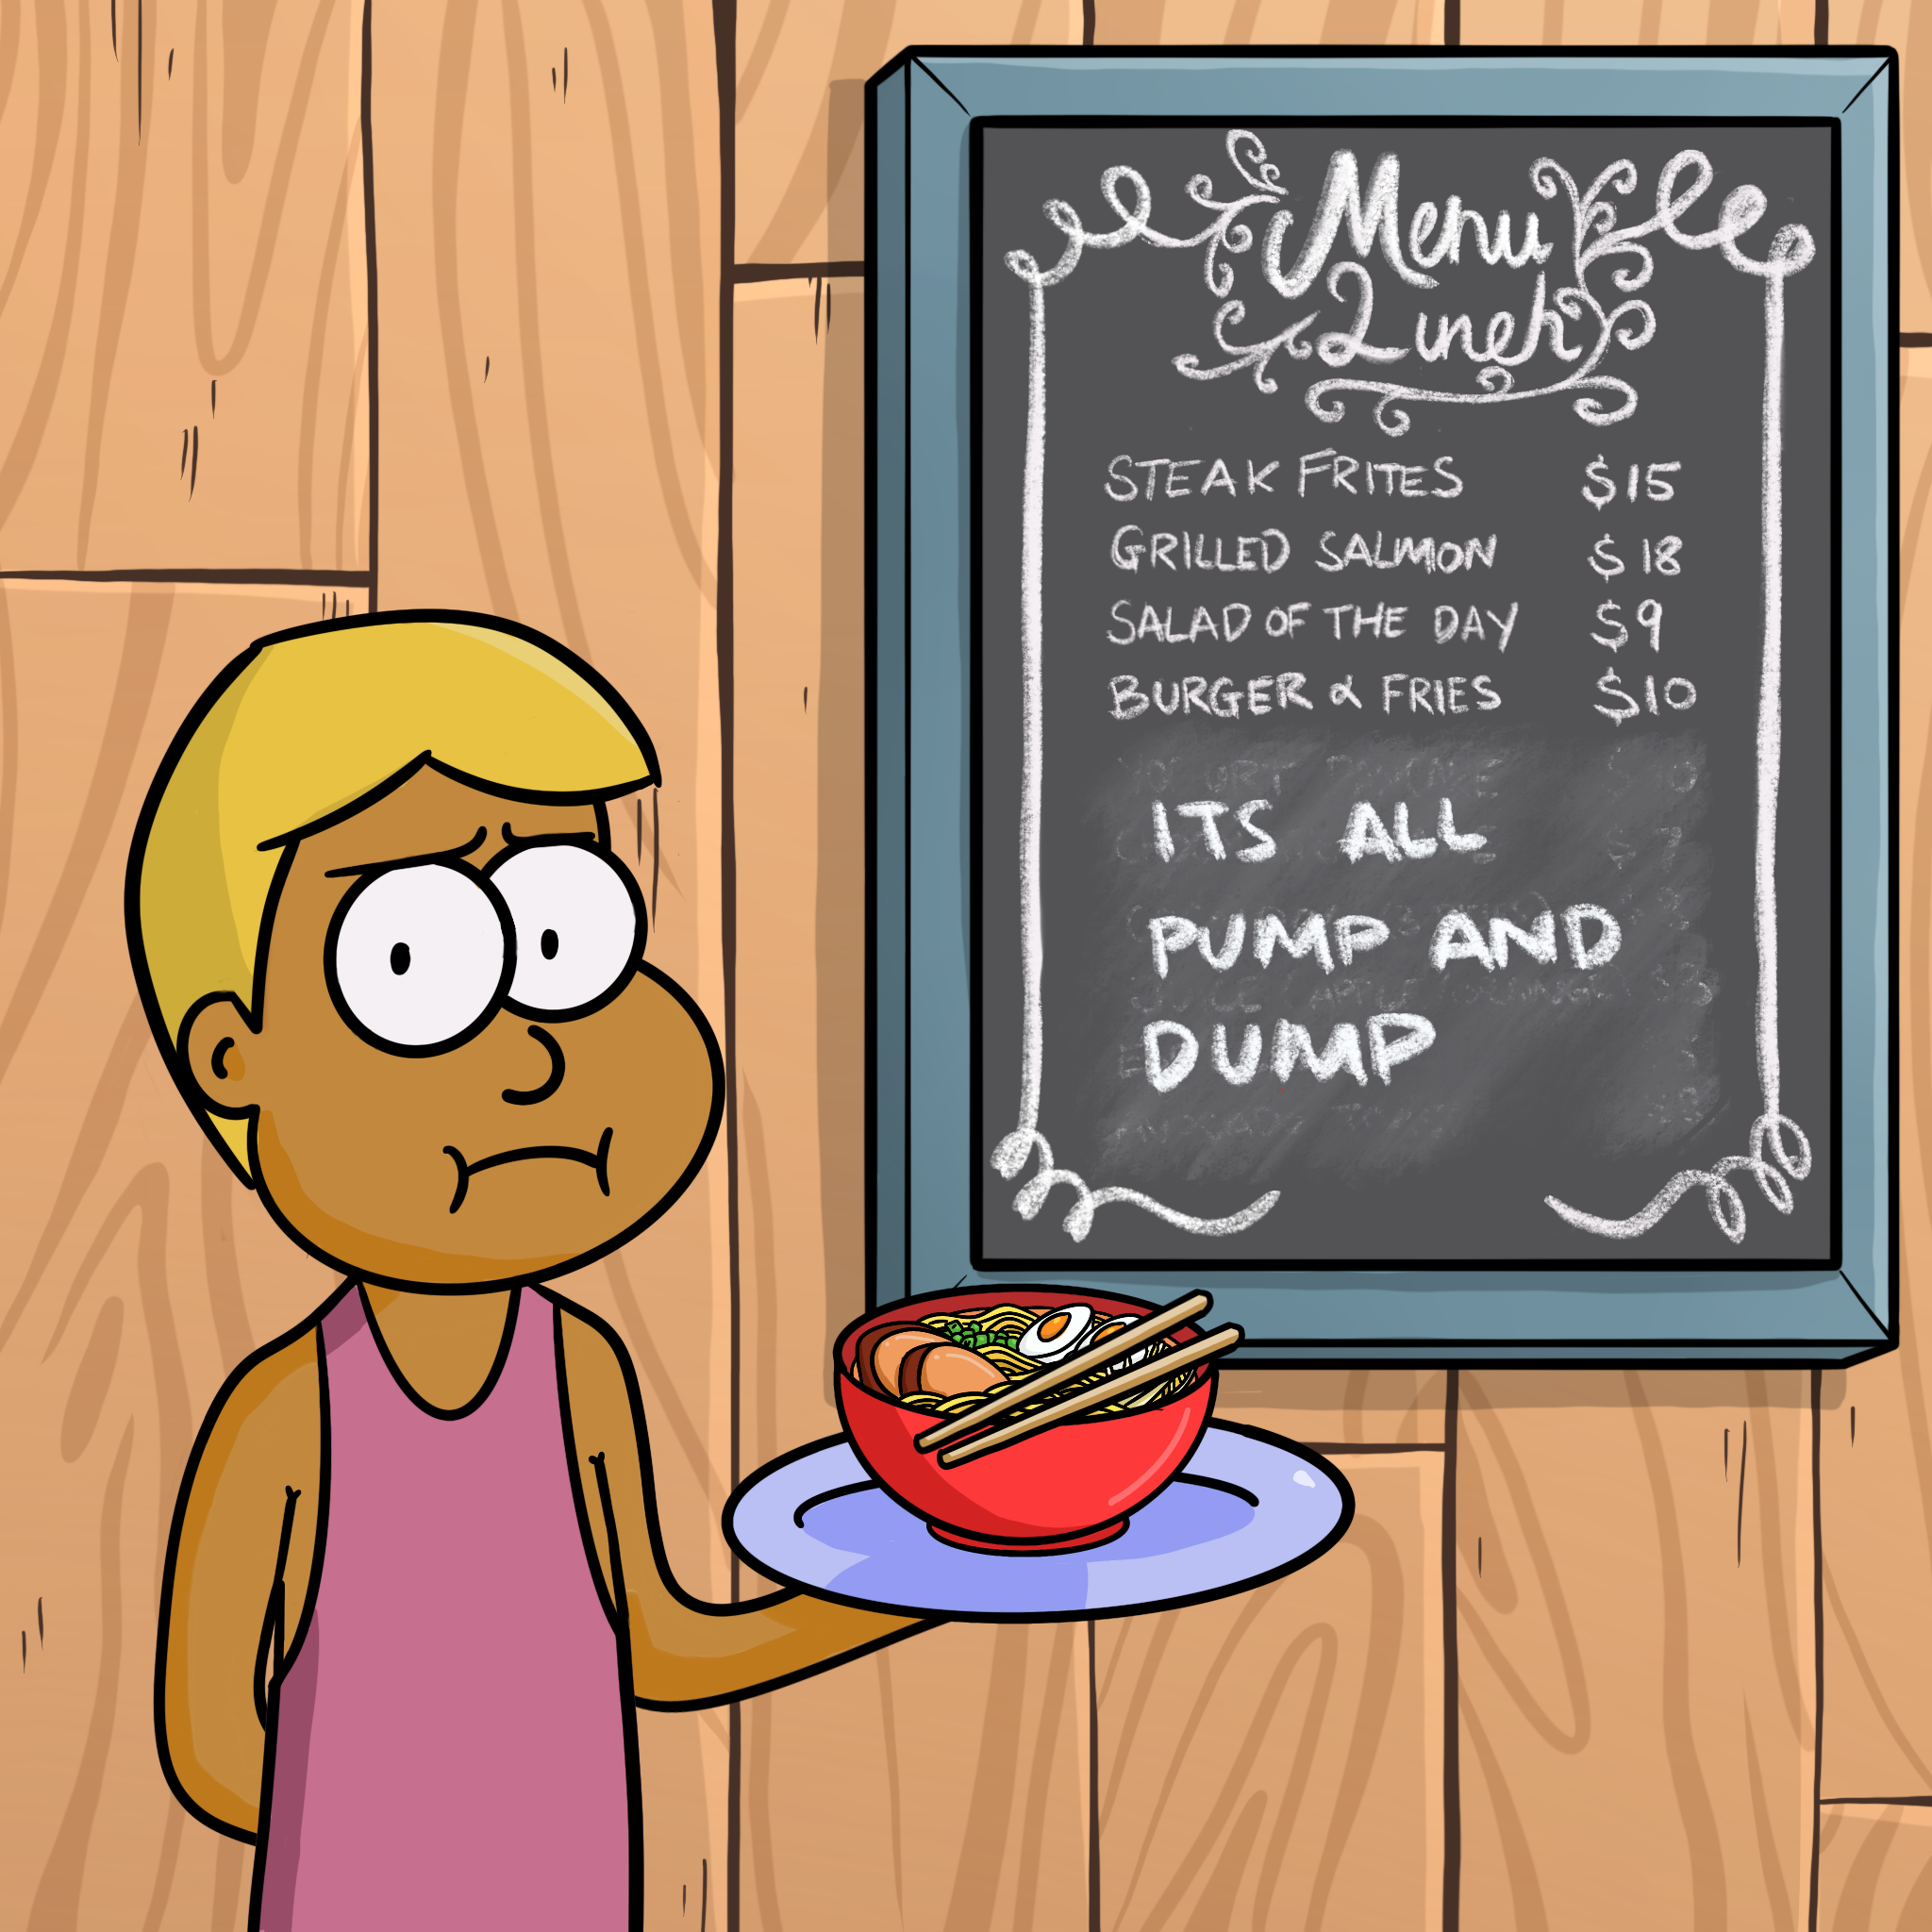 Menu
Lunch
STEAK FRITES $15
GRILLED SALMON $18
SALAD OF THE DAY $9
BURGER & FRIES $10
ITS ALL
PUMP AND
DUMP